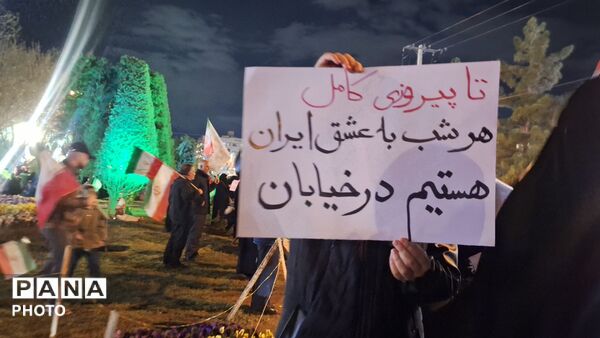 تا پیروزی کامل
هر شب به عشق ایران
هستیم در خیابان
PANA
PHOTO